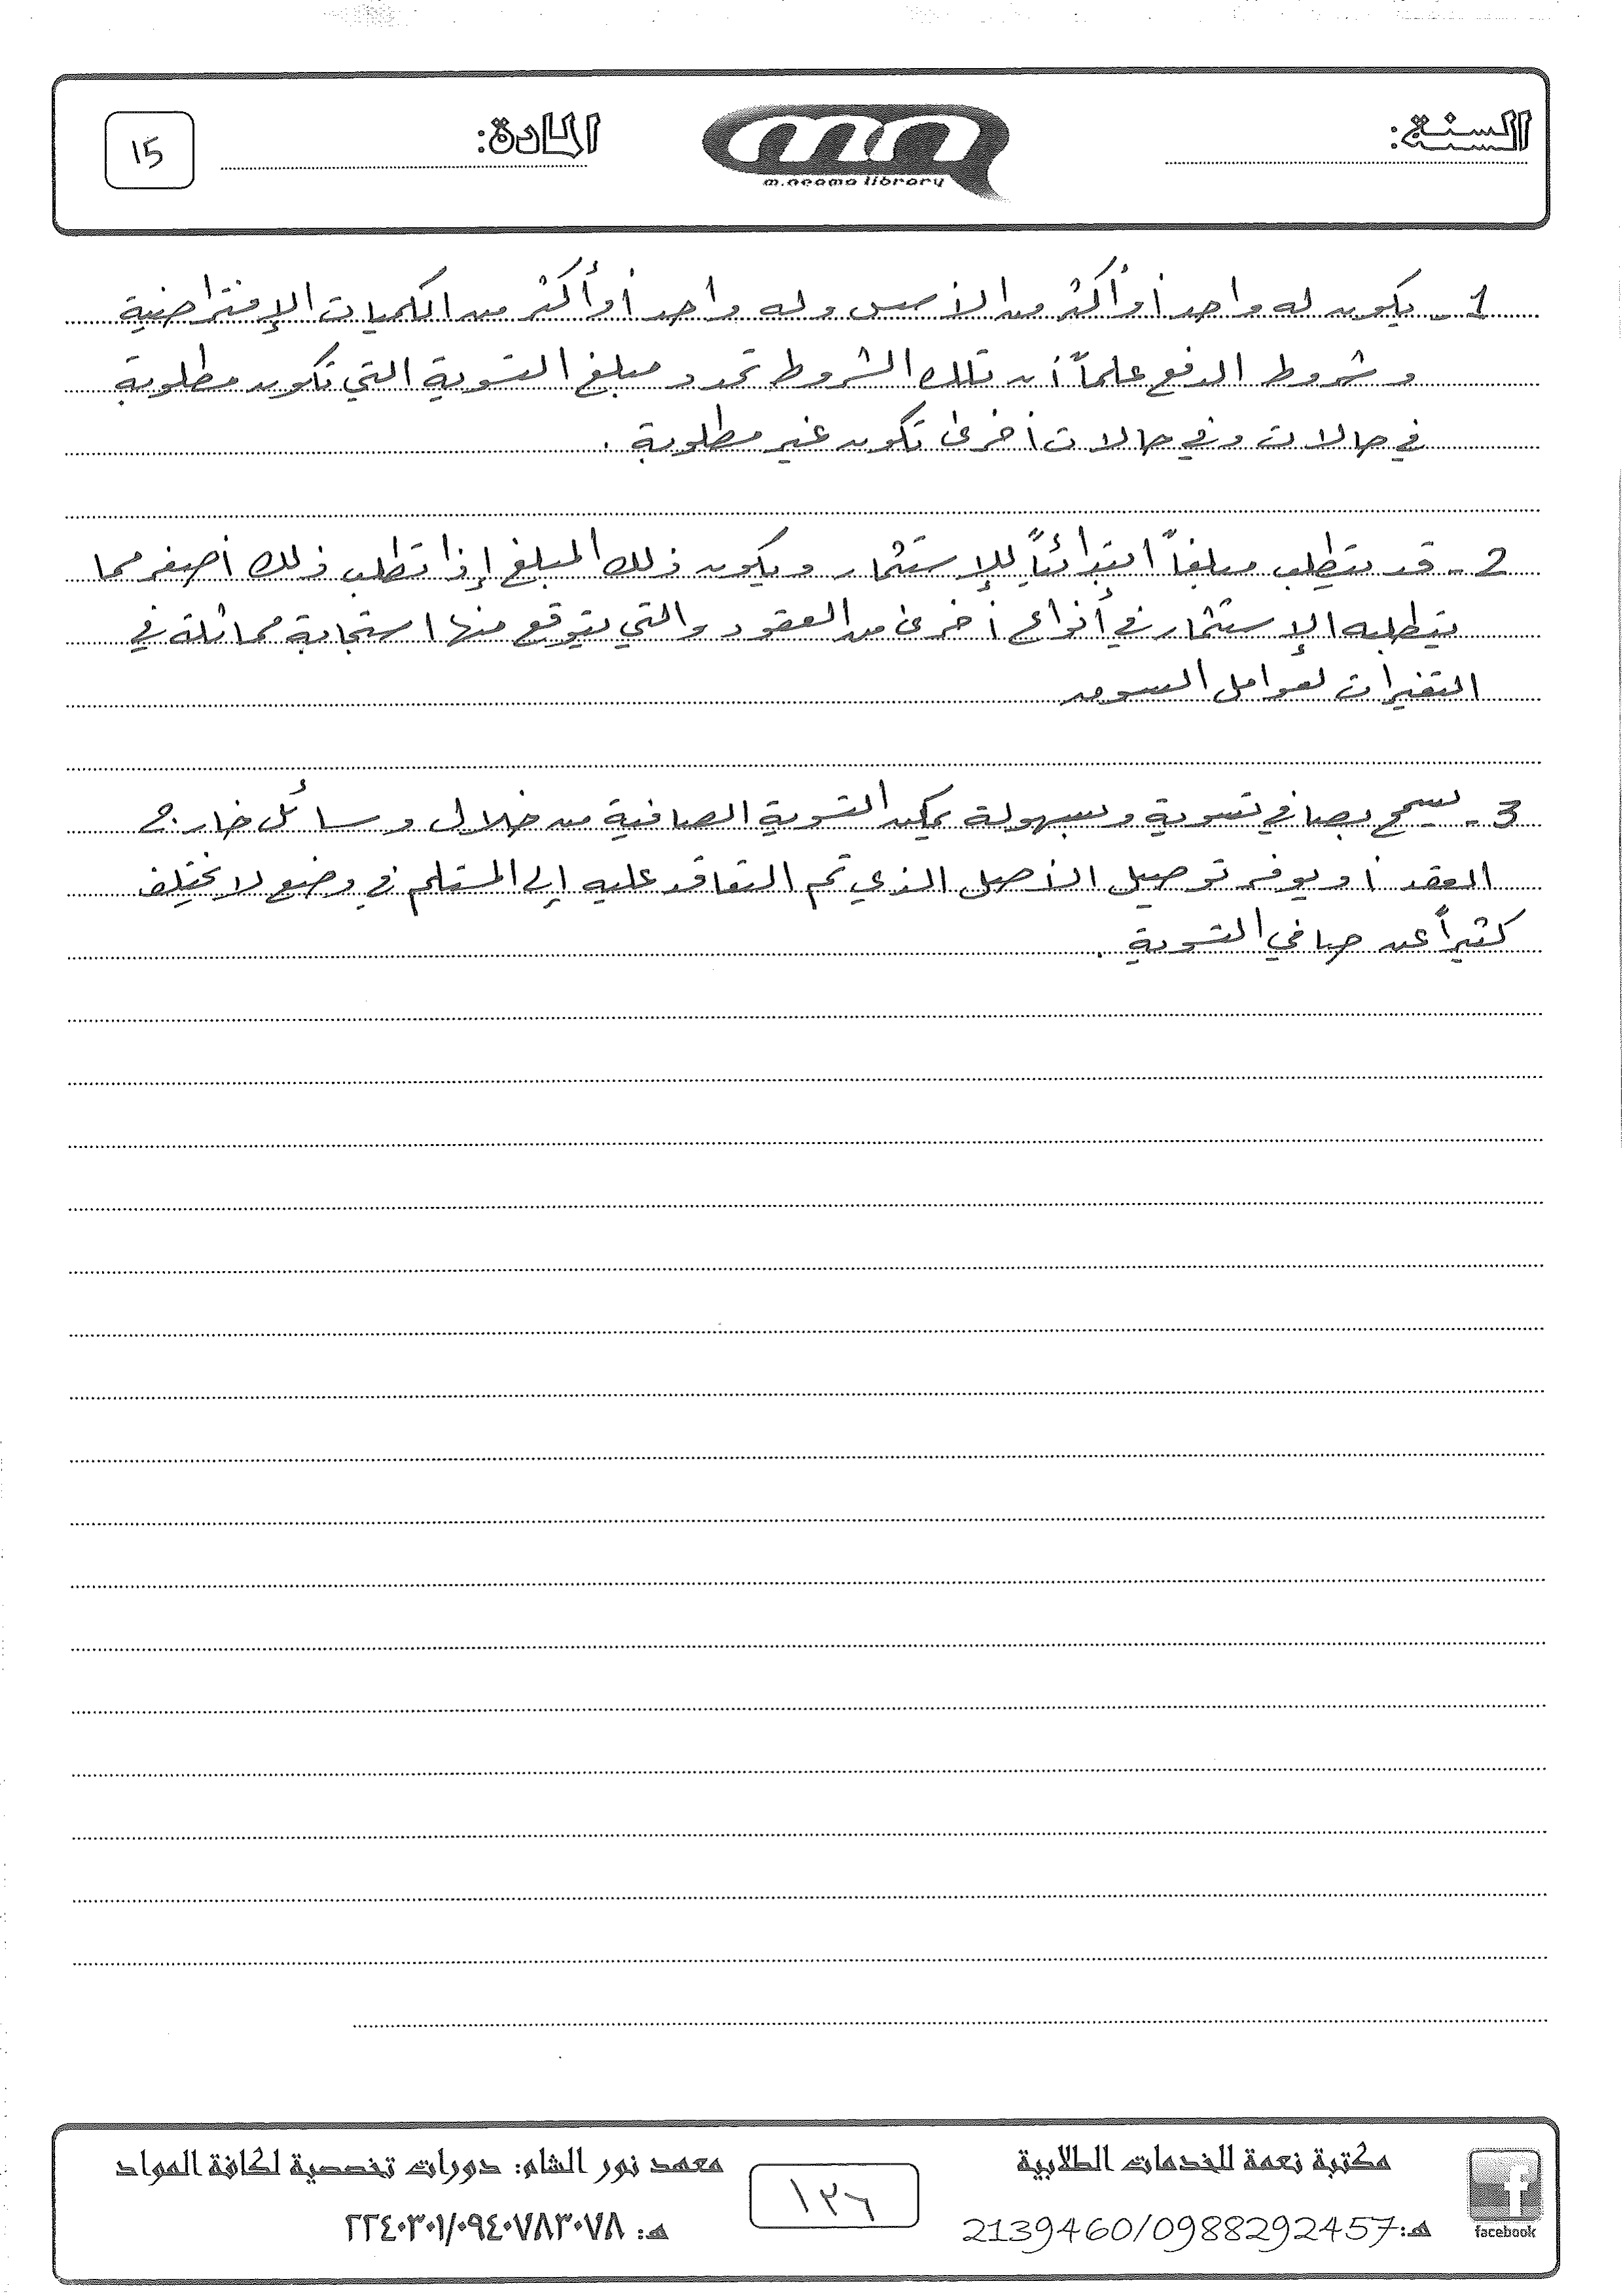 السنة:
m.neama library
المادة:
15
1- يكون له واحد أو أكثر من الأسس وله واحد أو أكثر من الكميات الإفتراضية
وشروط الدفع علماً أن تلك الشروط تحدد مبلغ التسوية التي تكون مطلوبة
في حالات وفي حالات أخرى تكون غير مطلوبة .
2- قد يتطلب مبلغاً ابتدائياً للإستثمار ويكون ذلك المبلغ إذا تطلب ذلك أصغر مما
يتطلبه الإستثمار في أنواع أخرى من العقود والتي يتوقع منها استجابة مماثلة في
التغيرات لعوامل السوق
3- يسمح بصافي تسوية وبسهولة يمكن التسوية الصافية من خلال وسائل خارج
العقد أو يوفر توصيل الأصل الذي تم التعاقد عليه إلى المستلم في وضع لا يختلف
كثيراً عن صافي التسوية .
مكتبة نعمة للخدمات الطلابية
هـ:2139460/0988292457
facebook
١٣٦
معهد نور الشام: دورات تخصصية لكافة المواد
هـ: ٢٢٤٠٣٠١/٠٩٤٠٧٨٣٠٧٨